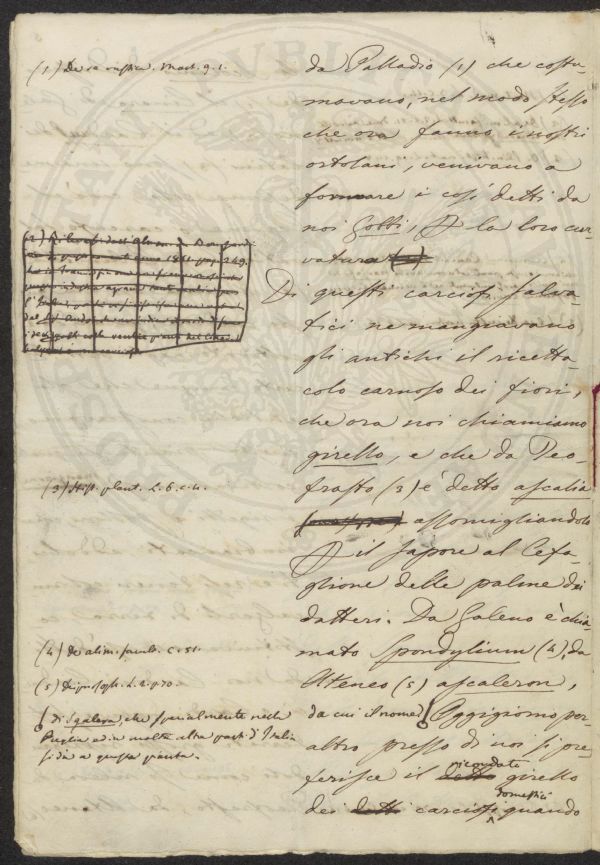 (1) De re rustica. Mart. 9. 1.
(3) Hist. plant. L. 6. c. 4.
(4) De alim. facult. c. 51.
(5) Deipnosoph. L. 2. p. 70.
di Sgalera, che specialmente nella
Puglia ed in molte altre parti d'Italia
si dà a questa pianta.
da Palladio (1) che costu-
mavano, nel modo stesso
che ora fanno i nostri
ortolani, venivano a
formare i così detti da
noi Gobbi, la loro cur-
vatura
Di questi carciofi salva-
tici ne mangiavano
gli antichi il ricetta-
colo carnoso dei fiori,
che ora noi chiamiamo
girello, e che da Teo-
frasto (3) è detto ascalia
assomigliandolo
il sapore al Cefa-
glione delle palme dei
datteri. Da Galeno è chia-
mato Spondylium (4), da
Ateneo (5) ascaleron,
da cui il nome Oggigiorno per-
altro presso di noi si pre-
ferisce il ricordato girello
dei carciofi domestici quando